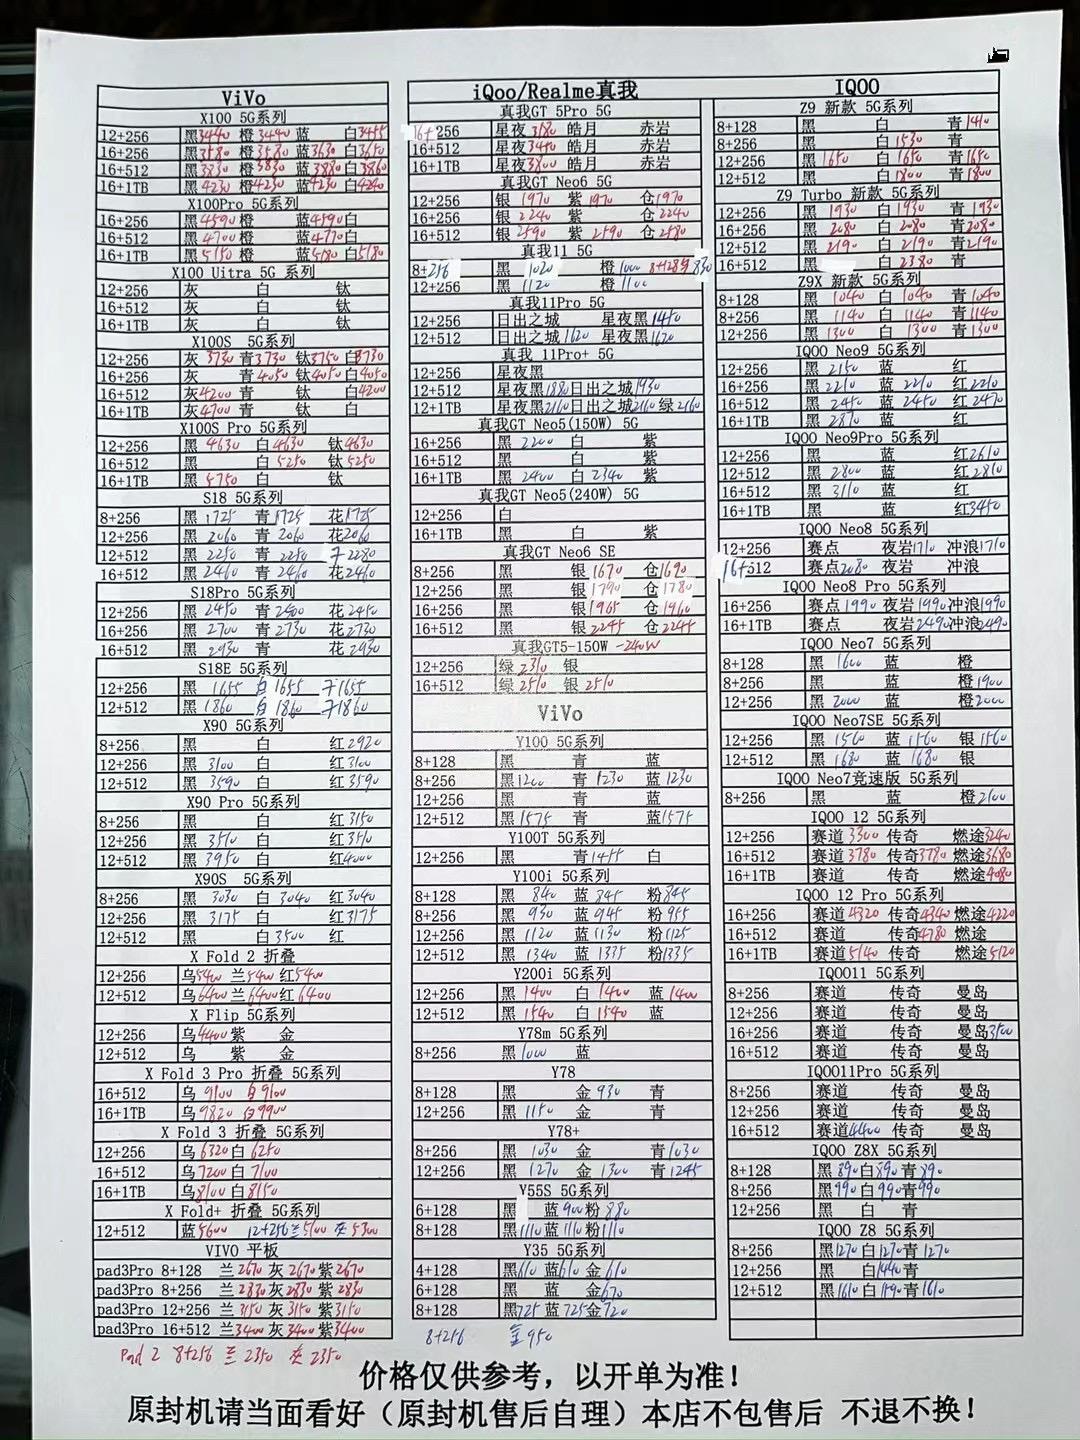 ViVo
X100 5G系列
12+256 黑3440 橙3440 蓝 白3455
16+256 黑3580 橙3580 蓝3630 白3650
16+512 黑3830 橙3830 蓝3880 白3860
16+1TB 黑4230 橙4230 蓝4230 白4240
X100Pro 5G系列
16+256 黑4590 橙 蓝4590 白
16+512 黑4700 橙 蓝4770 白
16+1TB 黑5150 橙 蓝5180 白5180
X100 Uitra 5G 系列
12+256 灰 白 钛
16+512 灰 白 钛
16+1TB 灰 白 钛
X100S 5G系列
12+256 灰3730 青3730 钛3750 白3730
16+256 灰 青4050 钛4050 白4050
16+512 灰4200 青 钛 白4200
16+1TB 灰4700 青 钛 白
X100S Pro 5G系列
12+256 黑4630 白4630 钛4630
16+512 黑 白5250 钛5250
16+1TB 黑5750 白 钛
S18 5G系列
8+256 黑1725 青1725 花1725
12+256 黑2060 青2060 花2060
12+512 黑2250 青2250 2280
16+512 黑2460 青2460 花2460
S18Pro 5G系列
12+256 黑2450 青2400 花2450
16+256 黑2700 青2730 花2730
16+512 黑2930 青 花2930
S18E 5G系列
12+256 黑1655 白1655 1655
12+512 黑1860 白1860 1860
X90 5G系列
8+256 黑 白 红2920
12+256 黑3100 白 红3100
12+512 黑3590 白 红3590
X90 Pro 5G系列
8+256 黑 白 红3150
12+256 黑3510 白 红3510
12+512 黑3950 白 红4000
X90S 5G系列
8+256 黑3030 白3040 红3040
12+256 黑3175 白 红3175
12+512 黑 白3500 红
X Fold 2 折叠
12+256 乌5400 兰5400 红5400
12+512 乌6400 兰6400 红6400
X Flip 5G系列
12+256 乌4400 紫 金
12+512 乌 紫 金
X Fold 3 Pro 折叠 5G系列
16+512 乌9100 白9100
16+1TB 乌9820 白9900
X Fold 3 折叠 5G系列
12+256 乌6320 白6250
16+512 乌7200 白7100
16+1TB 乌8100 白8150
X Fold+ 折叠 5G系列
12+512 蓝5600 12+256兰5100 灰5300
VIVO 平板
pad3Pro 8+128 兰2670 灰2670 紫2670
pad3Pro 8+256 兰2830 灰2830 紫2830
pad3Pro 12+256 兰3150 灰3150 紫3150
pad3Pro 16+512 兰3400 灰3400 紫3400
Pad 2 8+256 兰2350 灰2350
iQoo/Realme真我
真我GT 5Pro 5G
16+256 星夜3180 皓月 赤岩
16+512 星夜3450 皓月 赤岩
16+1TB 星夜3800 皓月 赤岩
真我GT Neo6 5G
12+256 银1970 紫1970 仓1970
16+256 银2240 紫 仓2240
16+512 银2590 紫2590 仓2580
真我11 5G
8+256 黑1020 橙1000 8+128 830
12+256 黑1120 橙1100
真我11Pro 5G
12+256 日出之城 星夜黑1450
12+512 日出之城1620 星夜黑1620
真我 11Pro+ 5G
12+256 星夜黑
12+512 星夜黑1880 日出之城1930
12+1TB 星夜黑2110 日出之城2160 绿2160
真我GT Neo5(150W) 5G
16+256 黑2200 白 紫
16+512 黑 白 紫
16+1TB 黑2400 白2340 紫
真我GT Neo5(240W) 5G
12+256 白
16+1TB 黑 白 紫
真我GT Neo6 SE
8+256 黑 银1670 仓1690
12+256 黑 银1790 仓1780
16+256 黑 银1965 仓1960
16+512 黑 银2245 仓2245
真我GT5-150W -240W
12+256 绿2310 银
16+512 绿2510 银2510
ViVo
Y100 5G系列
8+128 黑 青 蓝
8+256 黑1200 青1230 蓝1230
12+256 黑 青 蓝
12+512 黑1575 青 蓝1575
Y100T 5G系列
12+256 黑 青1455 白
Y100i 5G系列
8+128 黑840 蓝845 粉845
8+256 黑930 蓝945 粉955
12+256 黑1120 蓝1130 粉1125
12+512 黑1340 蓝1335 粉1335
Y200i 5G系列
12+256 黑1400 白1400 蓝1400
12+512 黑1540 白1540 蓝
Y78m 5G系列
8+256 黑1000 蓝
Y78
8+128 黑 金930 青
12+256 黑1150 金 青
Y78+
8+256 黑1030 金 青1030
12+256 黑1270 金1300 青1245
Y55S 5G系列
6+128 黑 蓝900 粉880
8+128 黑1110 蓝1110 粉1110
Y35 5G系列
4+128 黑610 蓝610 金610
6+128 黑 蓝 金670
8+128 黑725 蓝725 金720
8+256 金950
IQOO
Z9 新款 5G系列
8+128 黑 白 青1410
8+256 黑 白1530 青
12+256 黑1650 白1650 青1650
12+512 黑 白1800 青1800
Z9 Turbo 新款 5G系列
12+256 黑1930 白1930 青1930
16+256 黑2080 白2080 青2080
12+512 黑2190 白2190 青2190
16+512 黑 白2380 青
Z9X 新款 5G系列
8+128 黑1040 白1040 青1040
8+256 黑1140 白1140 青1140
12+256 黑1300 白1300 青1300
IQOO Neo9 5G系列
12+256 黑2150 蓝 红
16+256 黑2210 蓝2210 红2210
16+512 黑2450 蓝2450 红2470
16+1TB 黑2870 蓝 红
IQOO Neo9Pro 5G系列
16+256 黑 蓝 红2610
12+512 黑2800 蓝 红2810
16+512 黑3110 蓝 红
16+1TB 黑 蓝 红3450
IQOO Neo8 5G系列
12+256 赛点 夜岩1710 冲浪1710
16+512 赛点2080 夜岩 冲浪
IQOO Neo8 Pro 5G系列
16+256 赛点1990 夜岩1990 冲浪1990
16+1TB 赛点 夜岩2490 冲浪2490
IQOO Neo7 5G系列
8+128 黑1600 蓝 橙
8+256 黑 蓝 橙1900
12+256 黑2000 蓝 橙2000
IQOO Neo7SE 5G系列
12+256 黑1560 蓝1560 银1560
12+512 黑1680 蓝1680 银
IQOO Neo7竞速版 5G系列
8+256 黑 蓝 橙2100
IQOO 12 5G系列
12+256 赛道3300 传奇 燃途3240
16+512 赛道3780 传奇3780 燃途3680
16+1TB 赛道 传奇 燃途4080
IQOO 12 Pro 5G系列
16+256 赛道4320 传奇4340 燃途4220
16+512 赛道 传奇4780 燃途
16+1TB 赛道5140 传奇 燃途5120
IQOO11 5G系列
8+256 赛道 传奇 曼岛
12+256 赛道 传奇 曼岛
16+256 赛道 传奇 曼岛3500
16+512 赛道 传奇 曼岛
IQOO11Pro 5G系列
8+256 赛道 传奇 曼岛
12+256 赛道 传奇 曼岛
16+512 赛道4400 传奇 曼岛
IQOO Z8X 5G系列
8+128 黑890 白890 青890
8+256 黑990 白990 青990
12+256 黑 白 青
IQOO Z8 5G系列
8+256 黑1270 白1270 青1270
12+256 黑 白1440 青
12+512 黑1610 白1590 青1610
价格仅供参考，以开单为准！
原封机请当面看好（原封机售后自理）本店不包售后 不退不换！